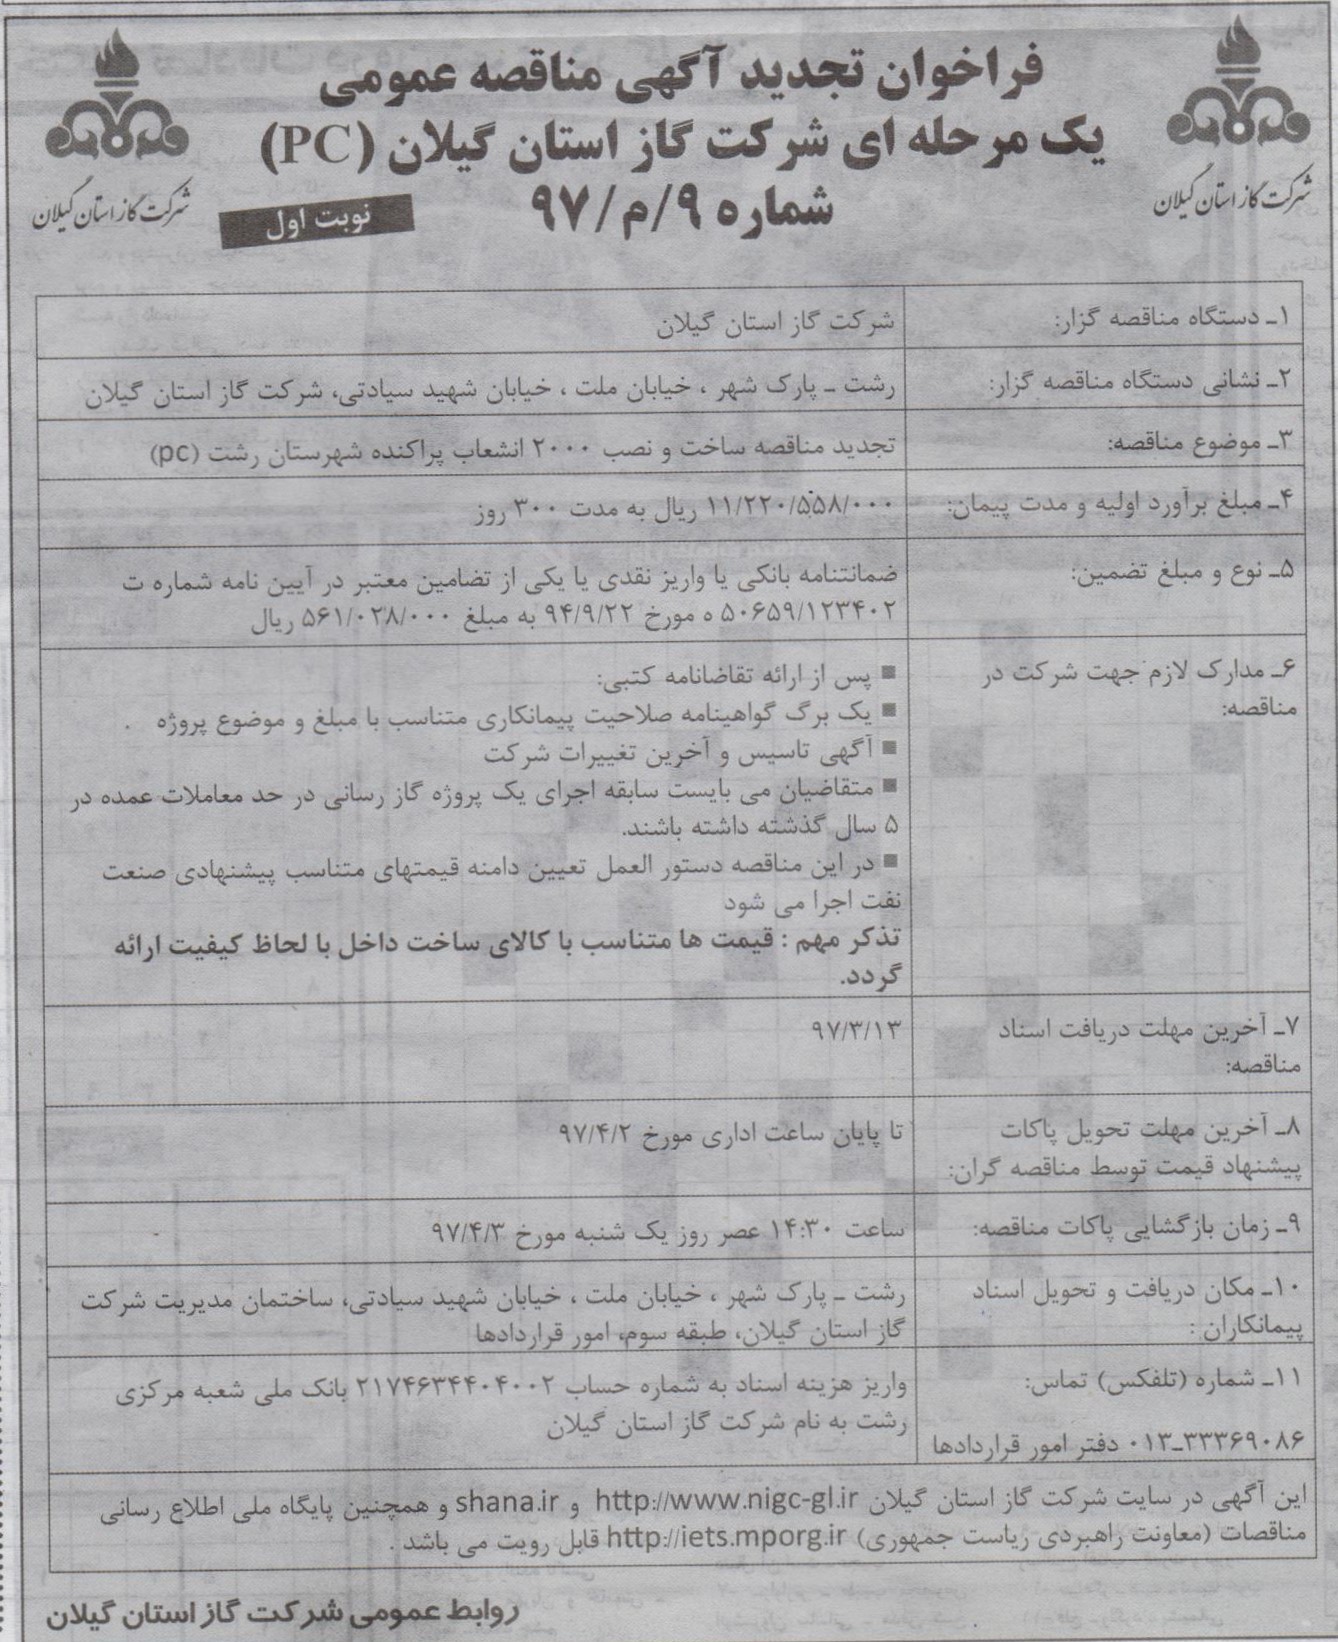 فراخوان تجدید آگهی مناقصه عمومی
یک مرحله ای شرکت گاز استان گیلان (PC)
شماره ۹/م/۹۷
نوبت اول
شرکت گاز استان گیلان
شرکت گاز استان گیلان
۱ـ دستگاه مناقصه گزار:
شرکت گاز استان گیلان
۲ـ نشانی دستگاه مناقصه گزار:
رشت ـ پارک شهر ، خیابان ملت ، خیابان شهید سیادتی، شرکت گاز استان گیلان
۳ـ موضوع مناقصه:
تجدید مناقصه ساخت و نصب ۲۰۰۰ انشعاب پراکنده شهرستان رشت (pc)
۴ـ مبلغ برآورد اولیه و مدت پیمان:
۱۱/۲۲۰/۵۵۸/۰۰۰ ریال به مدت ۳۰۰ روز
۵ـ نوع و مبلغ تضمین:
ضمانتنامه بانکی یا واریز نقدی یا یکی از تضامین معتبر در آیین نامه شماره ت
۵۰۶۵۹/۱۲۳۴۰۲ ه مورخ ۹۴/۹/۲۲ به مبلغ ۵۶۱/۰۲۸/۰۰۰ ریال
۶ـ مدارک لازم جهت شرکت در
مناقصه:
■ پس از ارائه تقاضانامه کتبی:
■ یک برگ گواهینامه صلاحیت پیمانکاری متناسب با مبلغ و موضوع پروژه .
■ آگهی تاسیس و آخرین تغییرات شرکت
■ متقاضیان می بایست سابقه اجرای یک پروژه گاز رسانی در حد معاملات عمده در
۵ سال گذشته داشته باشند.
■ در این مناقصه دستور العمل تعیین دامنه قیمتهای متناسب پیشنهادی صنعت
نفت اجرا می شود
تذکر مهم : قیمت ها متناسب با کالای ساخت داخل با لحاظ کیفیت ارائه
گردد.
۷ـ آخرین مهلت دریافت اسناد
مناقصه:
۹۷/۳/۱۳
۸ـ آخرین مهلت تحویل پاکات
پیشنهاد قیمت توسط مناقصه گران:
تا پایان ساعت اداری مورخ ۹۷/۴/۲
۹ـ زمان بازگشایی پاکات مناقصه:
ساعت ۱۴:۳۰ عصر روز یک شنبه مورخ ۹۷/۴/۳
۱۰ـ مکان دریافت و تحویل اسناد
پیمانکاران :
رشت ـ پارک شهر ، خیابان ملت ، خیابان شهید سیادتی، ساختمان مدیریت شرکت
گاز استان گیلان، طبقه سوم، امور قراردادها
۱۱ـ شماره (تلفکس) تماس:
۰۱۳ـ۳۳۳۶۹۰۸۶ دفتر امور قراردادها
واریز هزینه اسناد به شماره حساب ۲۱۷۴۶۳۴۴۰۴۰۰۲ بانک ملی شعبه مرکزی
رشت به نام شرکت گاز استان گیلان
این آگهی در سایت شرکت گاز استان گیلان http://www.nigc-gl.ir و shana.ir و همچنین پایگاه ملی اطلاع رسانی
مناقصات (معاونت راهبردی ریاست جمهوری) http://iets.mporg.ir قابل رویت می باشد .
روابط عمومی شرکت گاز استان گیلان